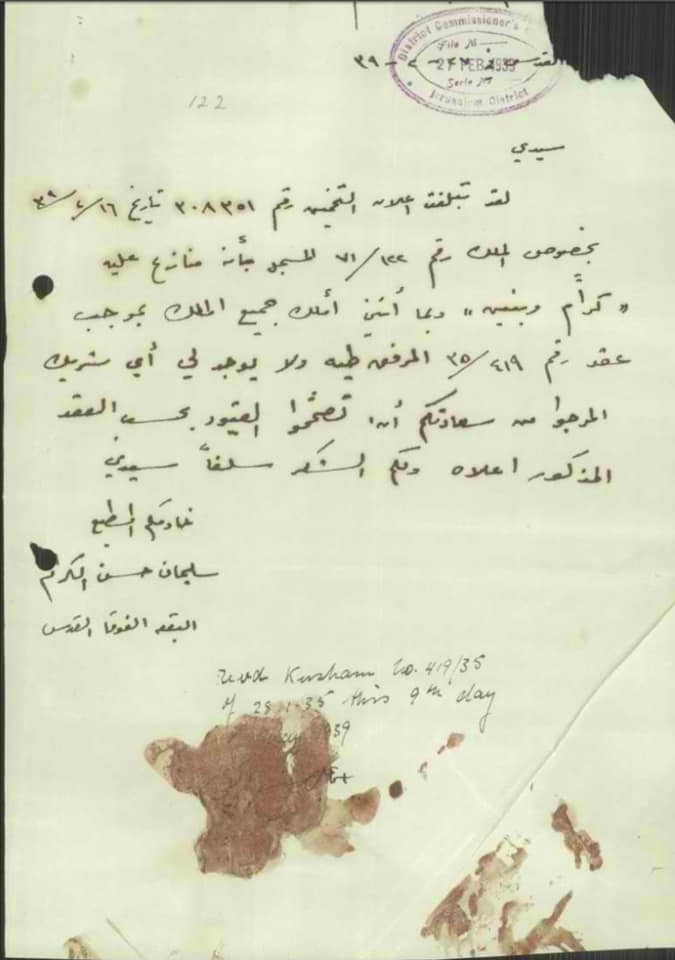 District Commissioner's
File №
27 FEB 1939
Serle №
Jerusalem District
القدس
٣٩
122
سيدي
لقد تبلغت اعلان التخمين رقم ٣٠٨٣٥١ تاريخ ١٦/٢/٣٩
بخصوص الملك رقم ١٢٢/٧١ المسجل بأنه منازع عليه
"كرام وبنيه" وبما أنني أملك جميع الملك بموجب
عقد رقم ٤١٩/٣٥ المرفق طيه ولا يوجد لي أي شريك
المرجوا من سعادتكم أن تصححوا القيود بحسب العقد
المذكور اعلاه ولكم الشكر سلفاً سيدي
خادمكم المطيع
سليمان حسن
البقعه الفوقا القدس
Kushan No. 419/35
of 28.1.35 this 9th day
1939